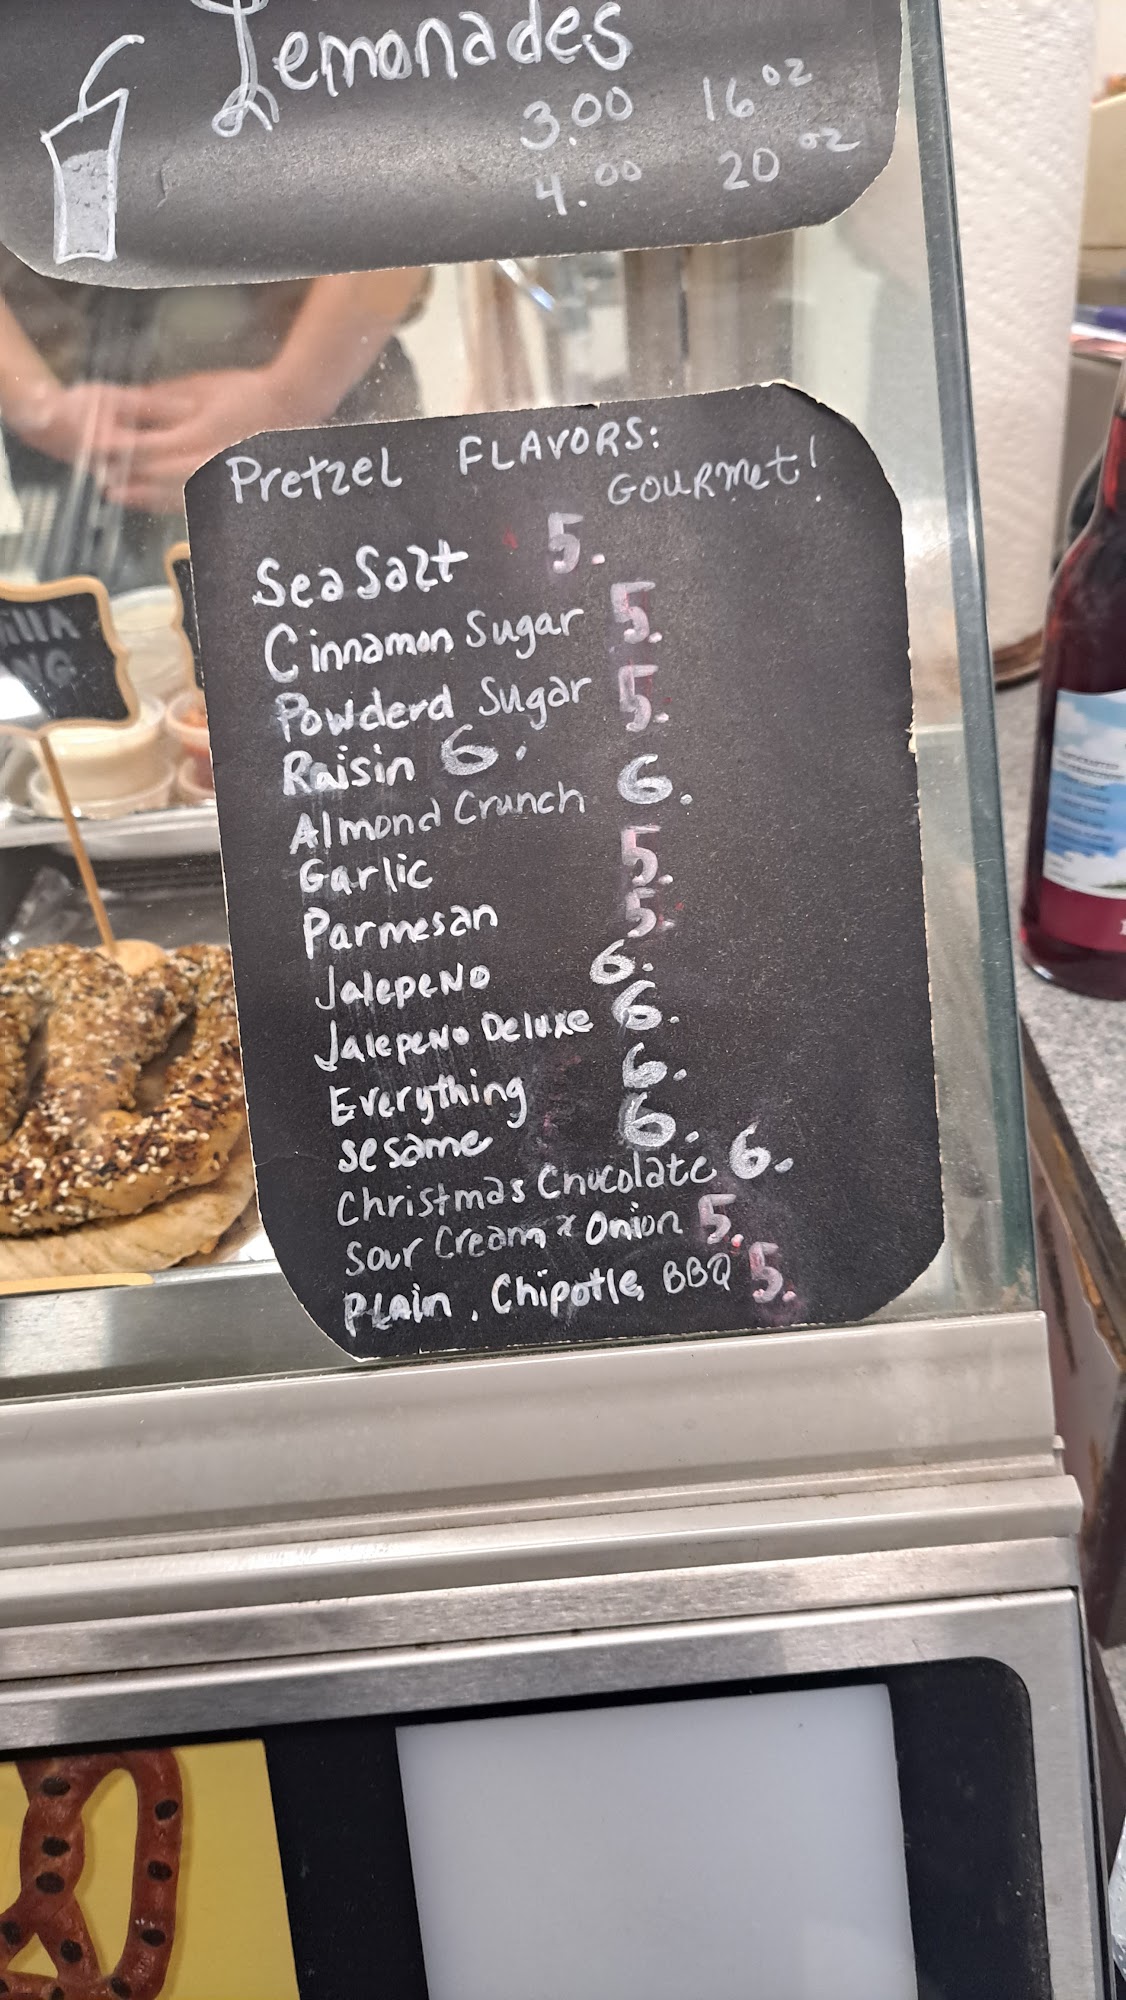 Lemonades
3.00 16 oz
4.00 20 oz
Pretzel FLAVORS:
GOURMET!
Sea Salt 5.
Cinnamon Sugar 5.
Powderd Sugar 5.
Raisin 6.
Almond Crunch 6.
Garlic 5.
Parmesan 5.
JalepeNo 6.
JalepeNo Deluxe 6.
Everything 6.
sesame 6.
Christmas Chocolate 6.
Sour Cream & Onion 5.
PLAin, Chipotle, BBQ 5.